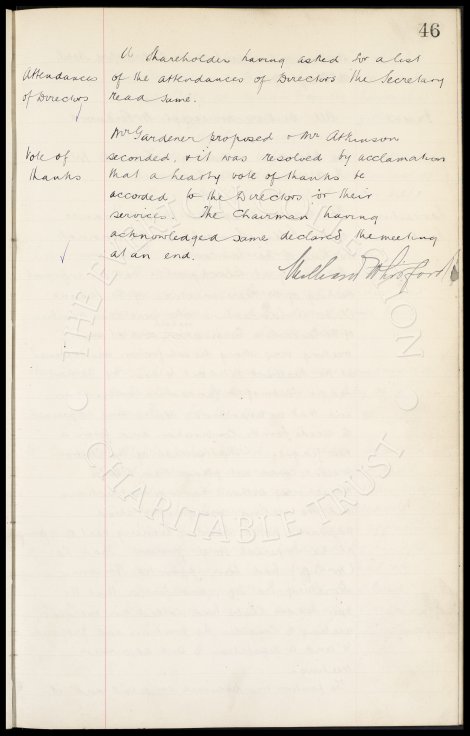 46
A Shareholder having asked for a list
Attendances of the attendances of Directors the Secretary
of Directors read same.
Mr Gardener proposed & Mr Atkinson
Vote of seconded, & it was resolved by acclamation
thanks that a hearty vote of thanks be
accorded to the Directors for their
services. The Chairman having
acknowledged same declared the meeting
at an end.
THE EVERTON COLLECTION
CHARITABLE TRUST